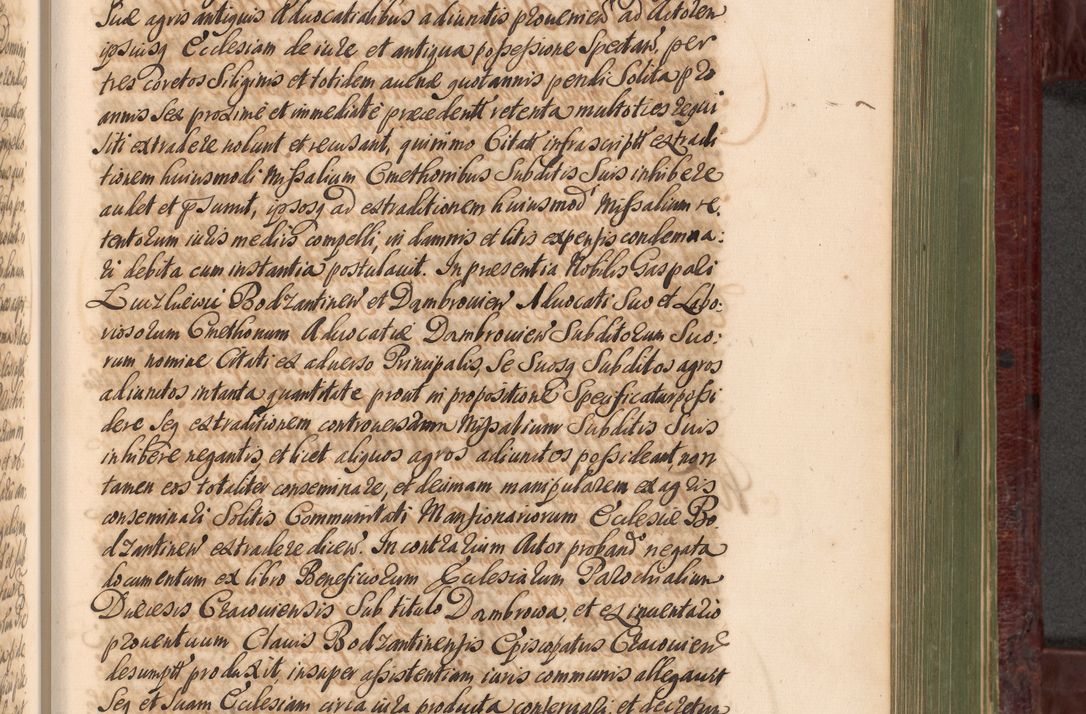 suæ agris antiquis Advocatialibus adiunctis provenien̄ ad Actorem
ipsiusq Ecclesiam de iure et antiqua possessione Spectan̄, per
tres Coretos Siliginis et totidem avenæ quotannis pendi Solita pro
annis Sex proxime et immediate præcedentt retenta multoties requi
siti extradere nolunt et recusant, quinimo Citatt infrascriptt extradi
tionem huiusmodi Missalium Cmethonibus Subditis Suis inhibere
audet et p̄sumit, ipsosq ad extraditionem huiusmod Missalium re„
tentorum iuris mediis compelli, in damnis et litis expensis condemna„
ri debita cum instantia postulavit. In præsentia Nobilis Gaspari
Bodzantinen̄ et Dambrovien̄ Advocati Suo et Labo„
riosorum Cmethonum Advocatiæ Dambrovien̄ Subditorum Suo„
rum nomine Citati ex adverso Principalis, Se Suosq Subditos agros
adiunctos in tanta quantitate prout in propositione Specificatur possi
dere Seq extraditionem controversarum Missalium Subditis Suis
inhibere negantis, et licet aliquos agros adiunctos possideant non
tamen eos totaliter conseminare, et decimam manipularem ex agris
conseminari Solitis Communitati Mansionariorum Ecclesiæ Bo
dzantinen̄ extradere dicen̄. In contrarium Actor proband̄ negata
documentum ex libro Beneficiorum Ecclesiarum Parochialium
Diæcesis Cracoviensis Sub titulo Dambrowa, et ex inventario
proventuum Clavis Bodzantinensis Episcopatus Cracovien̄
desumptt produxit, insuper assistentiam iuris communis allegavit
Seq et Suam Ecclesiam circa iura producta conservari, et decretum